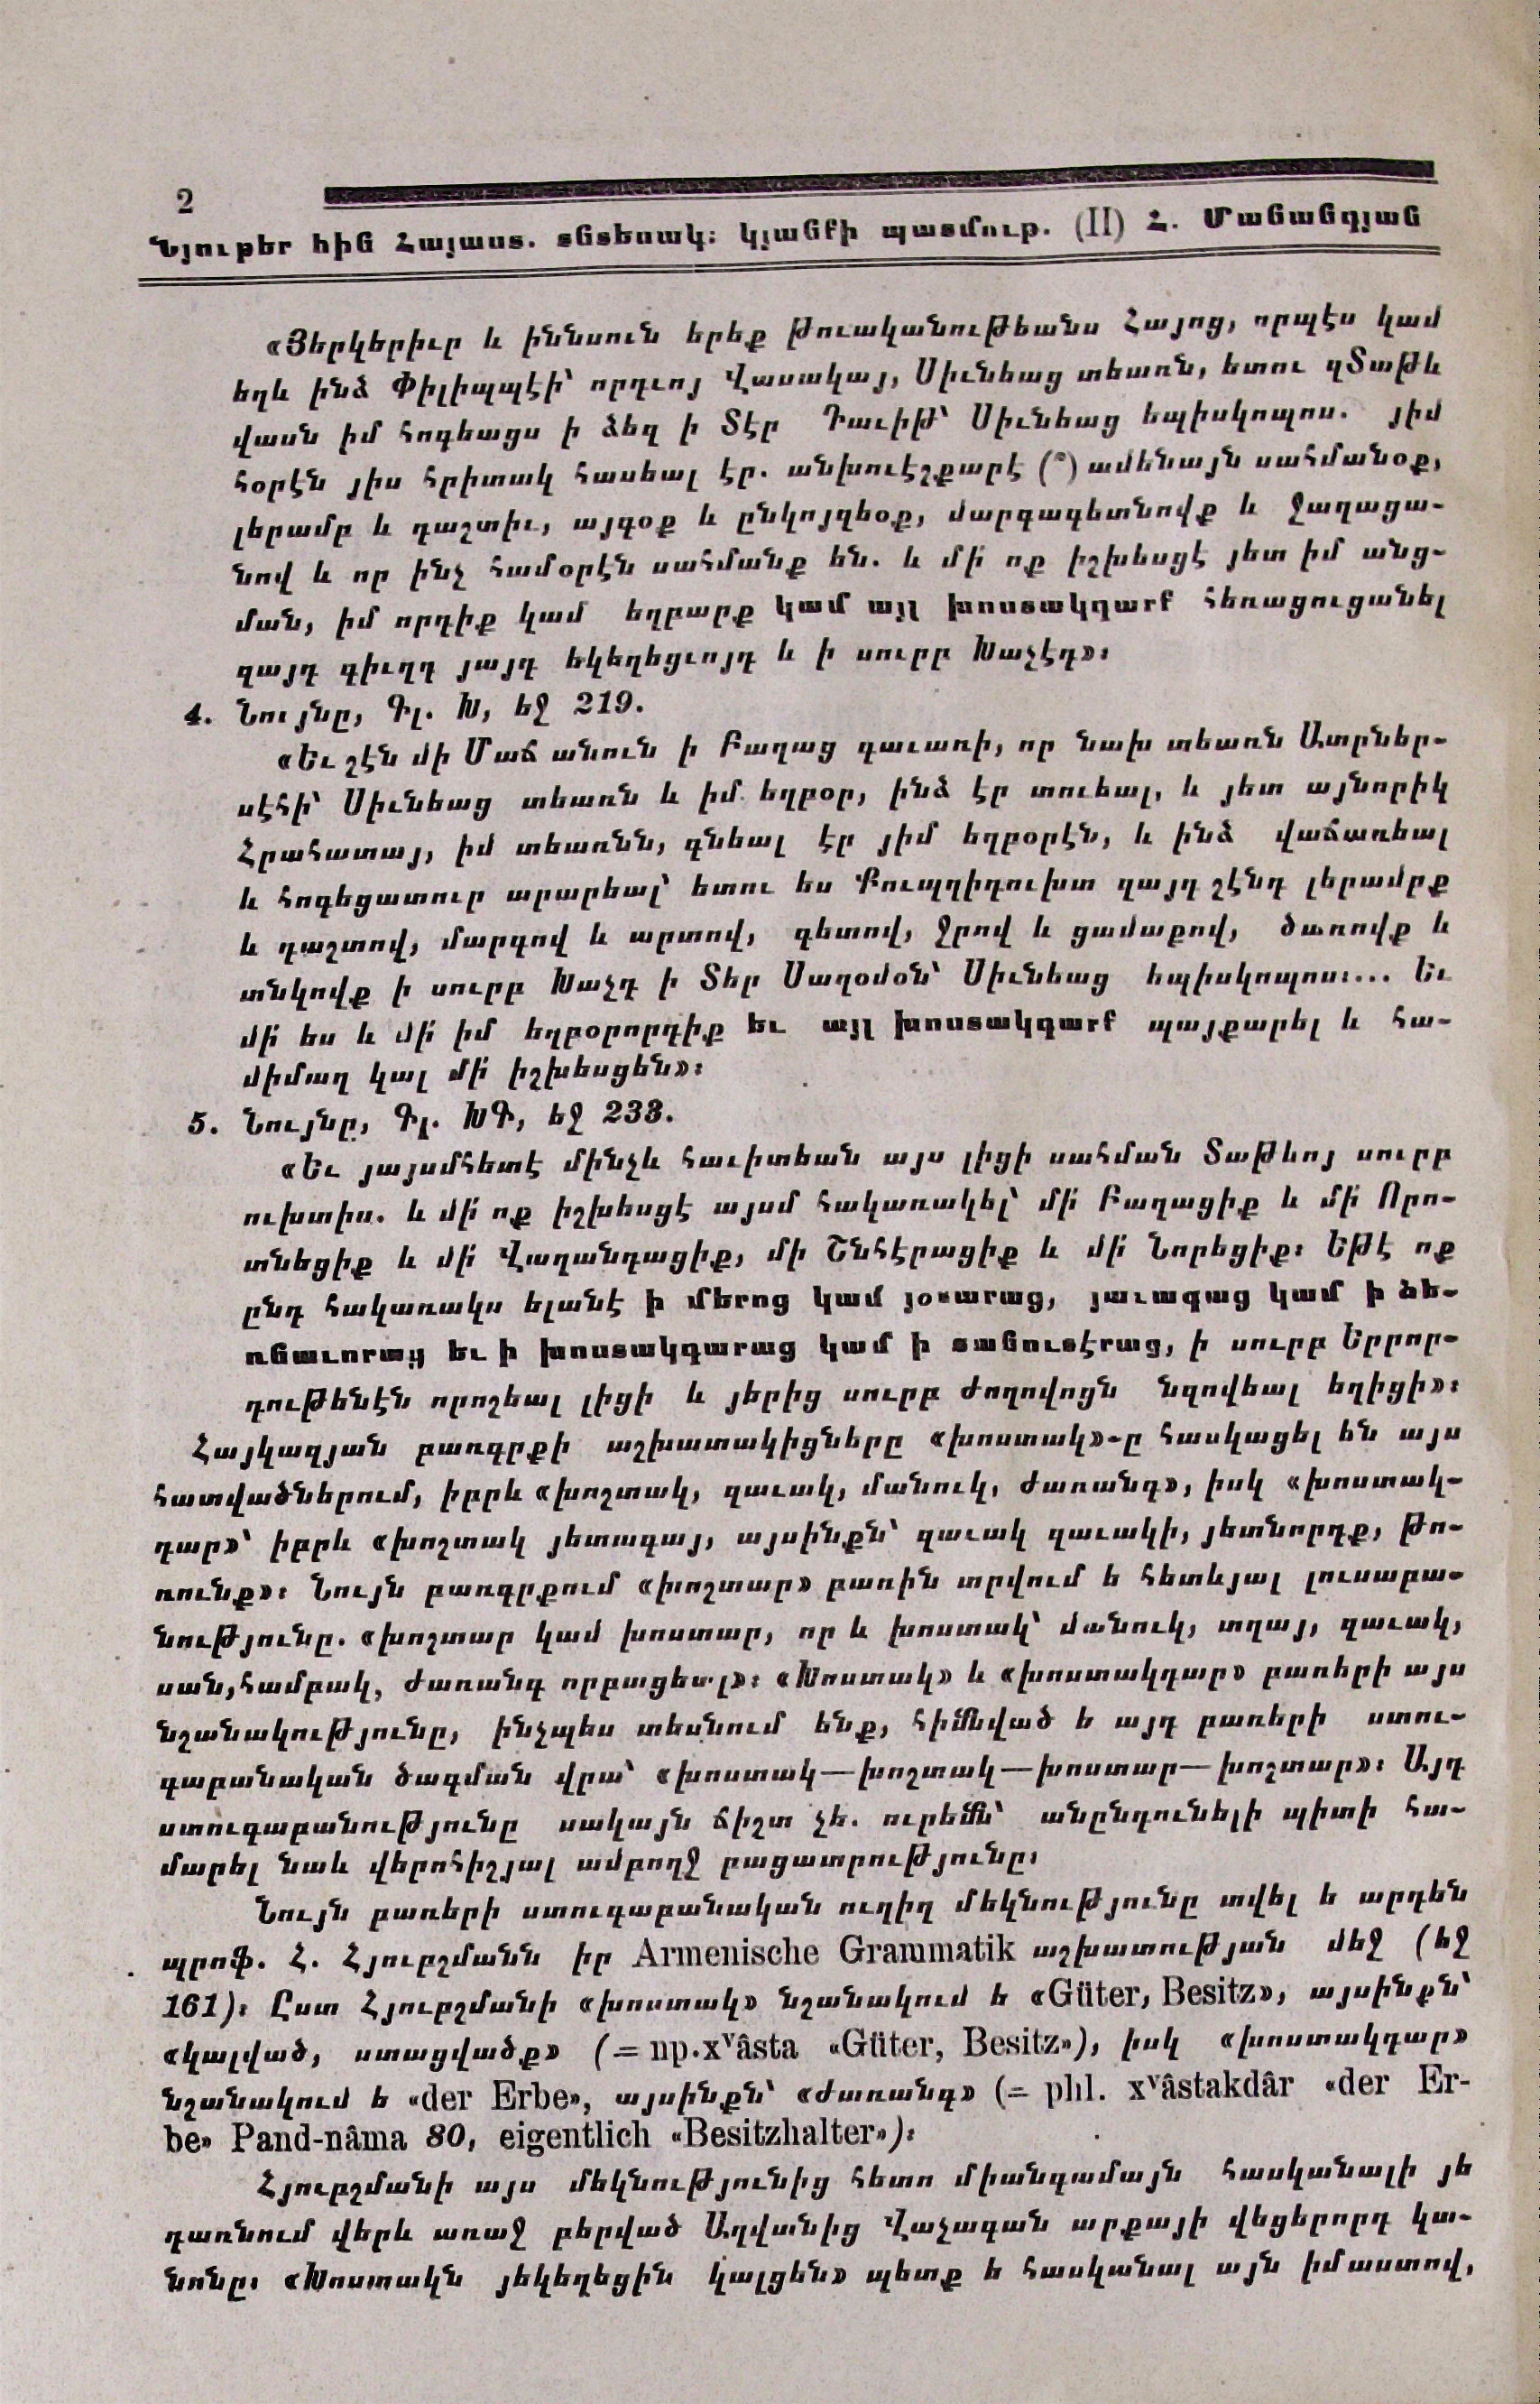 2
Նյութեր հին Հայաստ. տնտեսակ։ կյանքի պատմութ. (II) Հ. Մանանդյան
«Յերկերիւր և իննսուն երեք թուականութեանս Հայոց, որպէս կամ
եղև ինձ Փիլիպպէի՝ որդւոյ Վասակայ, Սիւնեաց տեառն, ետու զՏաթև
վասն իմ հոգեացս ի ձեղ ի Տէր Դաւիթ՝ Սիւնեաց եպիսկոպոս. յիմ
հօրէն յիս հրիտակ հասեալ էր. անխուէշքարէ (՞) ամենայն սահմանօք,
լերամբ և դաշտիւ, այգօք և ընկոյզեօք, մարգագետնովք և ջաղացա-
նով և որ ինչ համօրէն սահմանք են. և մի՛ ոք իշխեսցէ յետ իմ անց-
ման, իմ որդիք կամ եղբարք կամ այլ խոստակդարք հեռացուցանել
զայդ գիւղդ յայդ եկեղեցւոյդ և ի սուրբ Խաչէդ»։
4. Նույնը, Գլ. Խ, եջ 219.
«Եւ շէն մի Մաճ անուն ի Բաղաց գաւառի, որ նախ տեառն Ատրներ-
սէհի՝ Սիւնեաց տեառն և իմ եղբօր, ինձ էր տուեալ, և յետ այնորիկ
Հրահատայ, իմ տեառնն, գնեալ էր յիմ եղբօրէն, և ինձ վաճառեալ
և հոգեցատուր արարեալ՝ ետու ես Քուպղիդուխտ զայդ շէնդ լերամբք
և դաշտով, մարգով և արտով, գետով, ջրով և ցամաքով, ծառովք և
տնկովք ի սուրբ Խաչդ ի Տեր Սաղօմօն՝ Սիւնեաց եպիսկոպոս։... Եւ
մի՛ ես և մի՛ իմ եղբօրորդիք եւ այլ խոստակդարք պայքարել և հա-
միմաղ կալ մի՛ իշխեսցեն»։
5. Նույնը, Գլ. ԽԳ, եջ 233.
«Եւ յայսմհետէ մինչև հաւիտեան այս լիցի սահման Տաթևոյ սուրբ
ուխտիս. և մի՛ ոք իշխեսցէ այսմ հակառակել՝ մի՛ Բաղացիք և մի՛ Որո-
տնեցիք և մի՛ Վաղանդացիք, մի Շնհէրացիք և մի՛ Նորեցիք։ Եթէ ոք
ընդ հակառակս ելանէ ի մերոց կամ յօտարաց, յաւագաց կամ ի ձե-
ռնաւորաց եւ ի խոստակդարաց կամ ի տանուտէրաց, ի սուրբ Երրոր-
դութենէն որոշեալ լիցի և յերից սուրբ ժողովոցն նզովեալ եղիցի»։
Հայկազյան բառգրքի աշխատակիցները «խոստակ»-ը հասկացել են այս
հատվածներում, իբրև «խոշտակ, զաւակ, մանուկ, ժառանգ», իսկ «խոստակ-
դար»՝ իբրև «խոշտակ յետագայ, այսինքն՝ զաւակ զաւակի, յետնորդք, թո-
ռունք»։ Նույն բառգրքում «խոշտար» բառին տրվում ե հետևյալ լուսաբա-
նությունը. «խոշտար կամ խոստար, որ և խոստակ՝ մանուկ, տղայ, զաւակ,
սան, համբակ, ժառանգ որբացեալ»։ «Խոստակ» և «խոստակդար» բառերի այս
նշանակությունը, ինչպես տեսնում ենք, հիմնված ե այդ բառերի ստու-
գաբանական ծագման վրա՝ «խոստակ—խոշտակ—խոստար—խոշտար»։ Այդ
ստուգաբանությունը սակայն ճիշտ չե. ուրեմն՝ անընդունելի պիտի հա-
մարել նաև վերոհիշյալ ամբողջ բացատրությունը։
Նույն բառերի ստուգաբանական ուղիղ մեկնությունը տվել ե արդեն
պրոֆ. Հ. Հյուբշմանն իր Armenische Grammatik աշխատության մեջ (եջ
161)։ Ըստ Հյուբշմանի «խոստակ» նշանակում ե «Güter, Besitz», այսինքն՝
«կալված, ստացվածք» (= np. xᵛâsta «Güter, Besitz»), իսկ «խոստակդար»
նշանակում ե «der Erbe», այսինքն՝ «ժառանգ» (= phl. xᵛâstakdâr «der Er-
be» Pand-nâma 80, eigentlich «Besitzhalter»)։
Հյուբշմանի այս մեկնությունից հետո միանգամայն հասկանալի յե
դառնում վերև առաջ բերված Աղվանից Վաչագան արքայի վեցերորդ կա-
նոնը։ «Խոստակն յեկեղեցին կալցեն» պետք ե հասկանալ այն իմաստով,